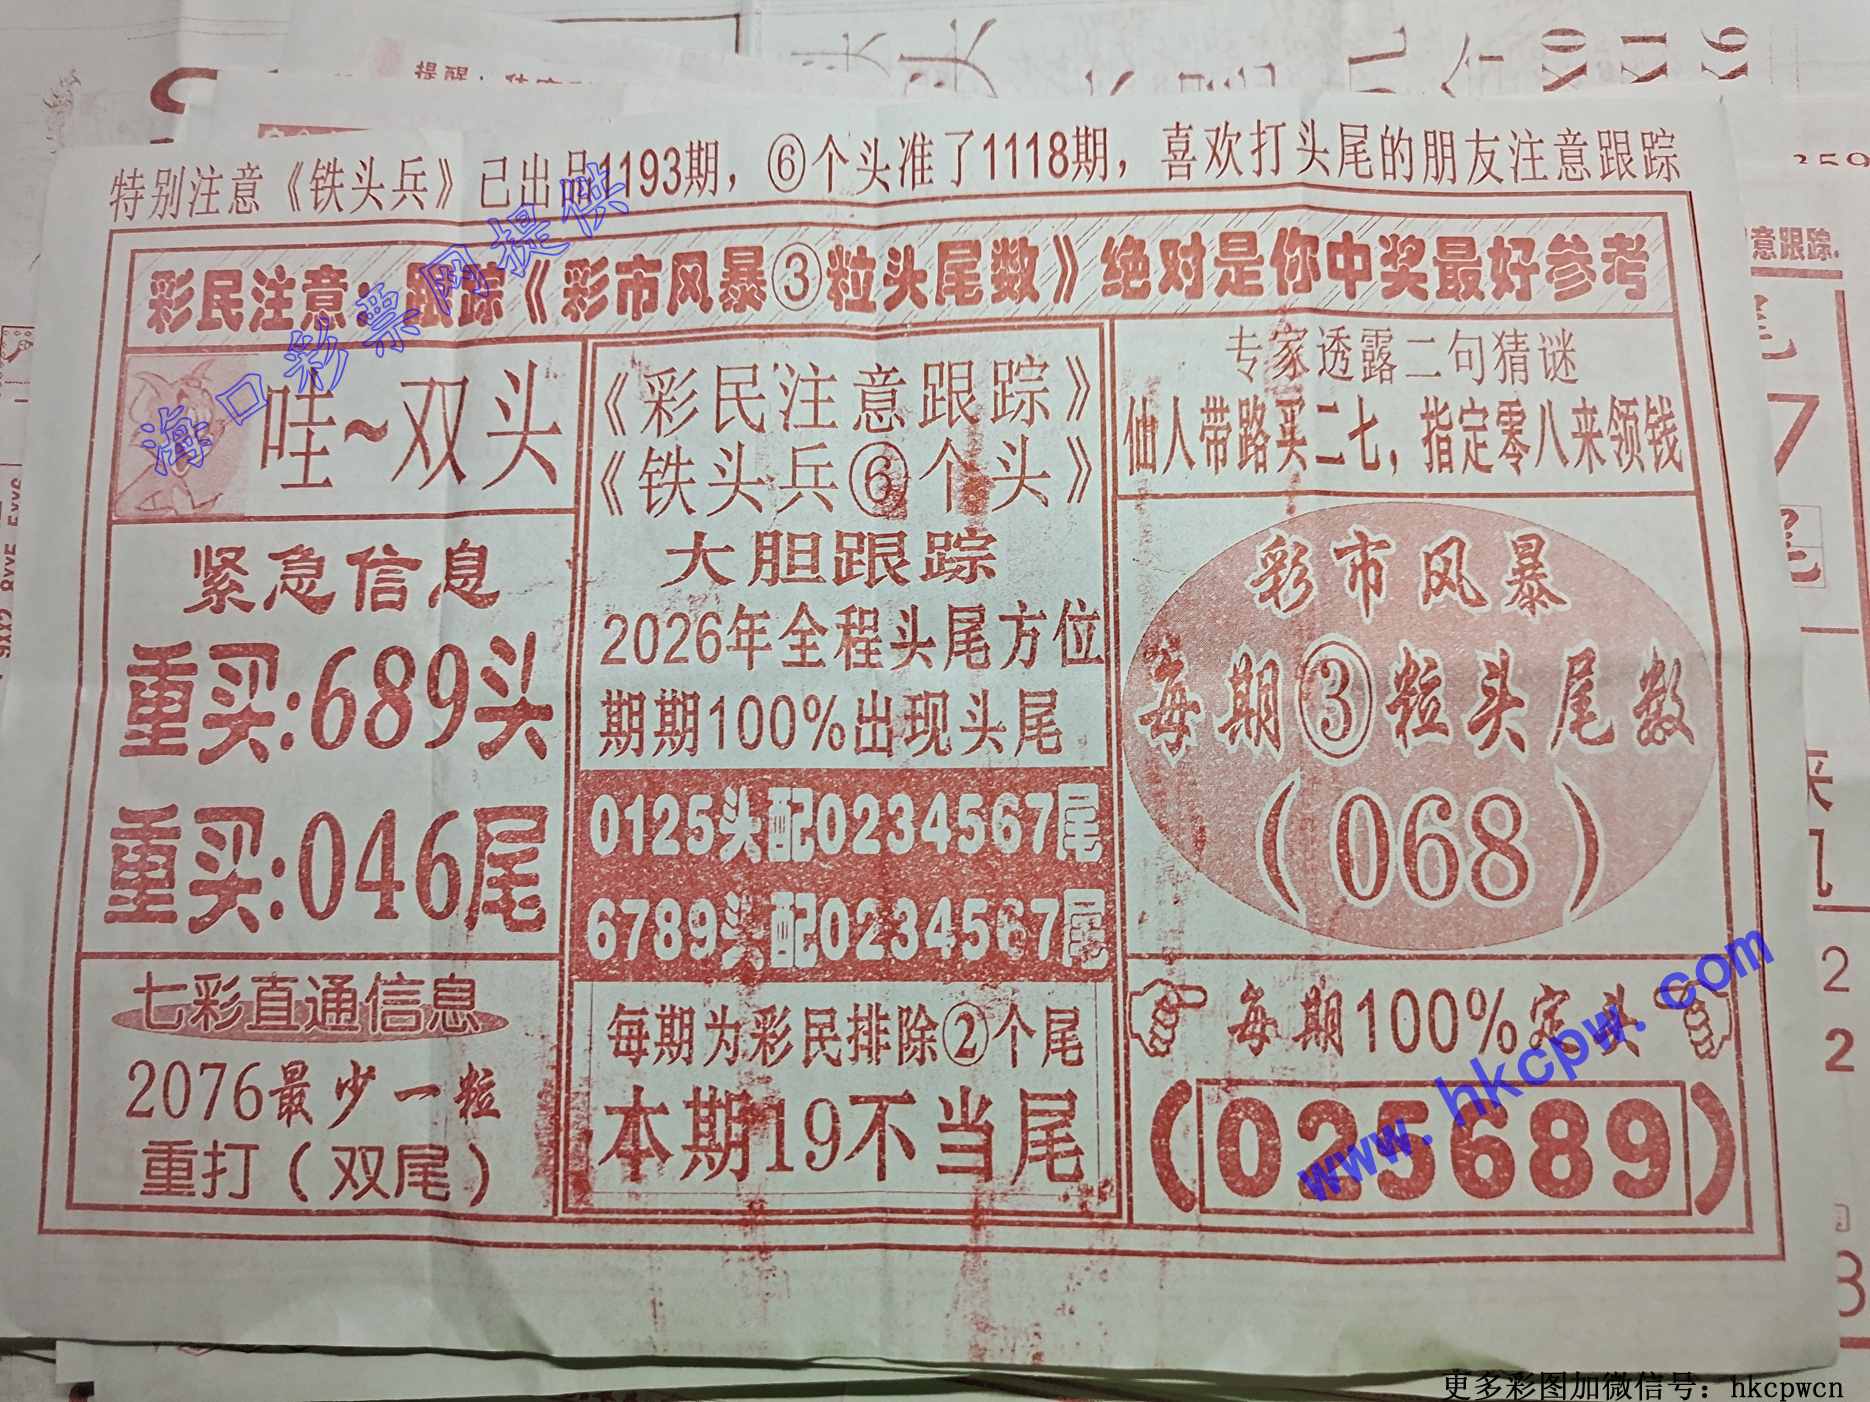 特别注意《铁头兵》已出品1193期，⑥个头准了1118期，喜欢打头尾的朋友注意跟踪
彩民注意：跟踪《彩市风暴③粒头尾数》绝对是你中奖最好参考
哇~双头
紧急信息
重买:689头
重买:046尾
七彩直通信息
2076最少一粒
重打（双尾）
《彩民注意跟踪》
《铁头兵⑥个头》
大胆跟踪
2026年全程头尾方位
期期100%出现头尾
0125头配0234567尾
6789头配0234567尾
每期为彩民排除②个尾
本期19不当尾
专家透露二句猜谜
仙人带路买二七，指定零八来领钱
彩市风暴
每期③粒头尾数
（068）
每期100%定头
（025689）
海口彩票网提供
www.hkcpw.com
更多彩图加微信号：hkcpwcn
提醒
意跟踪